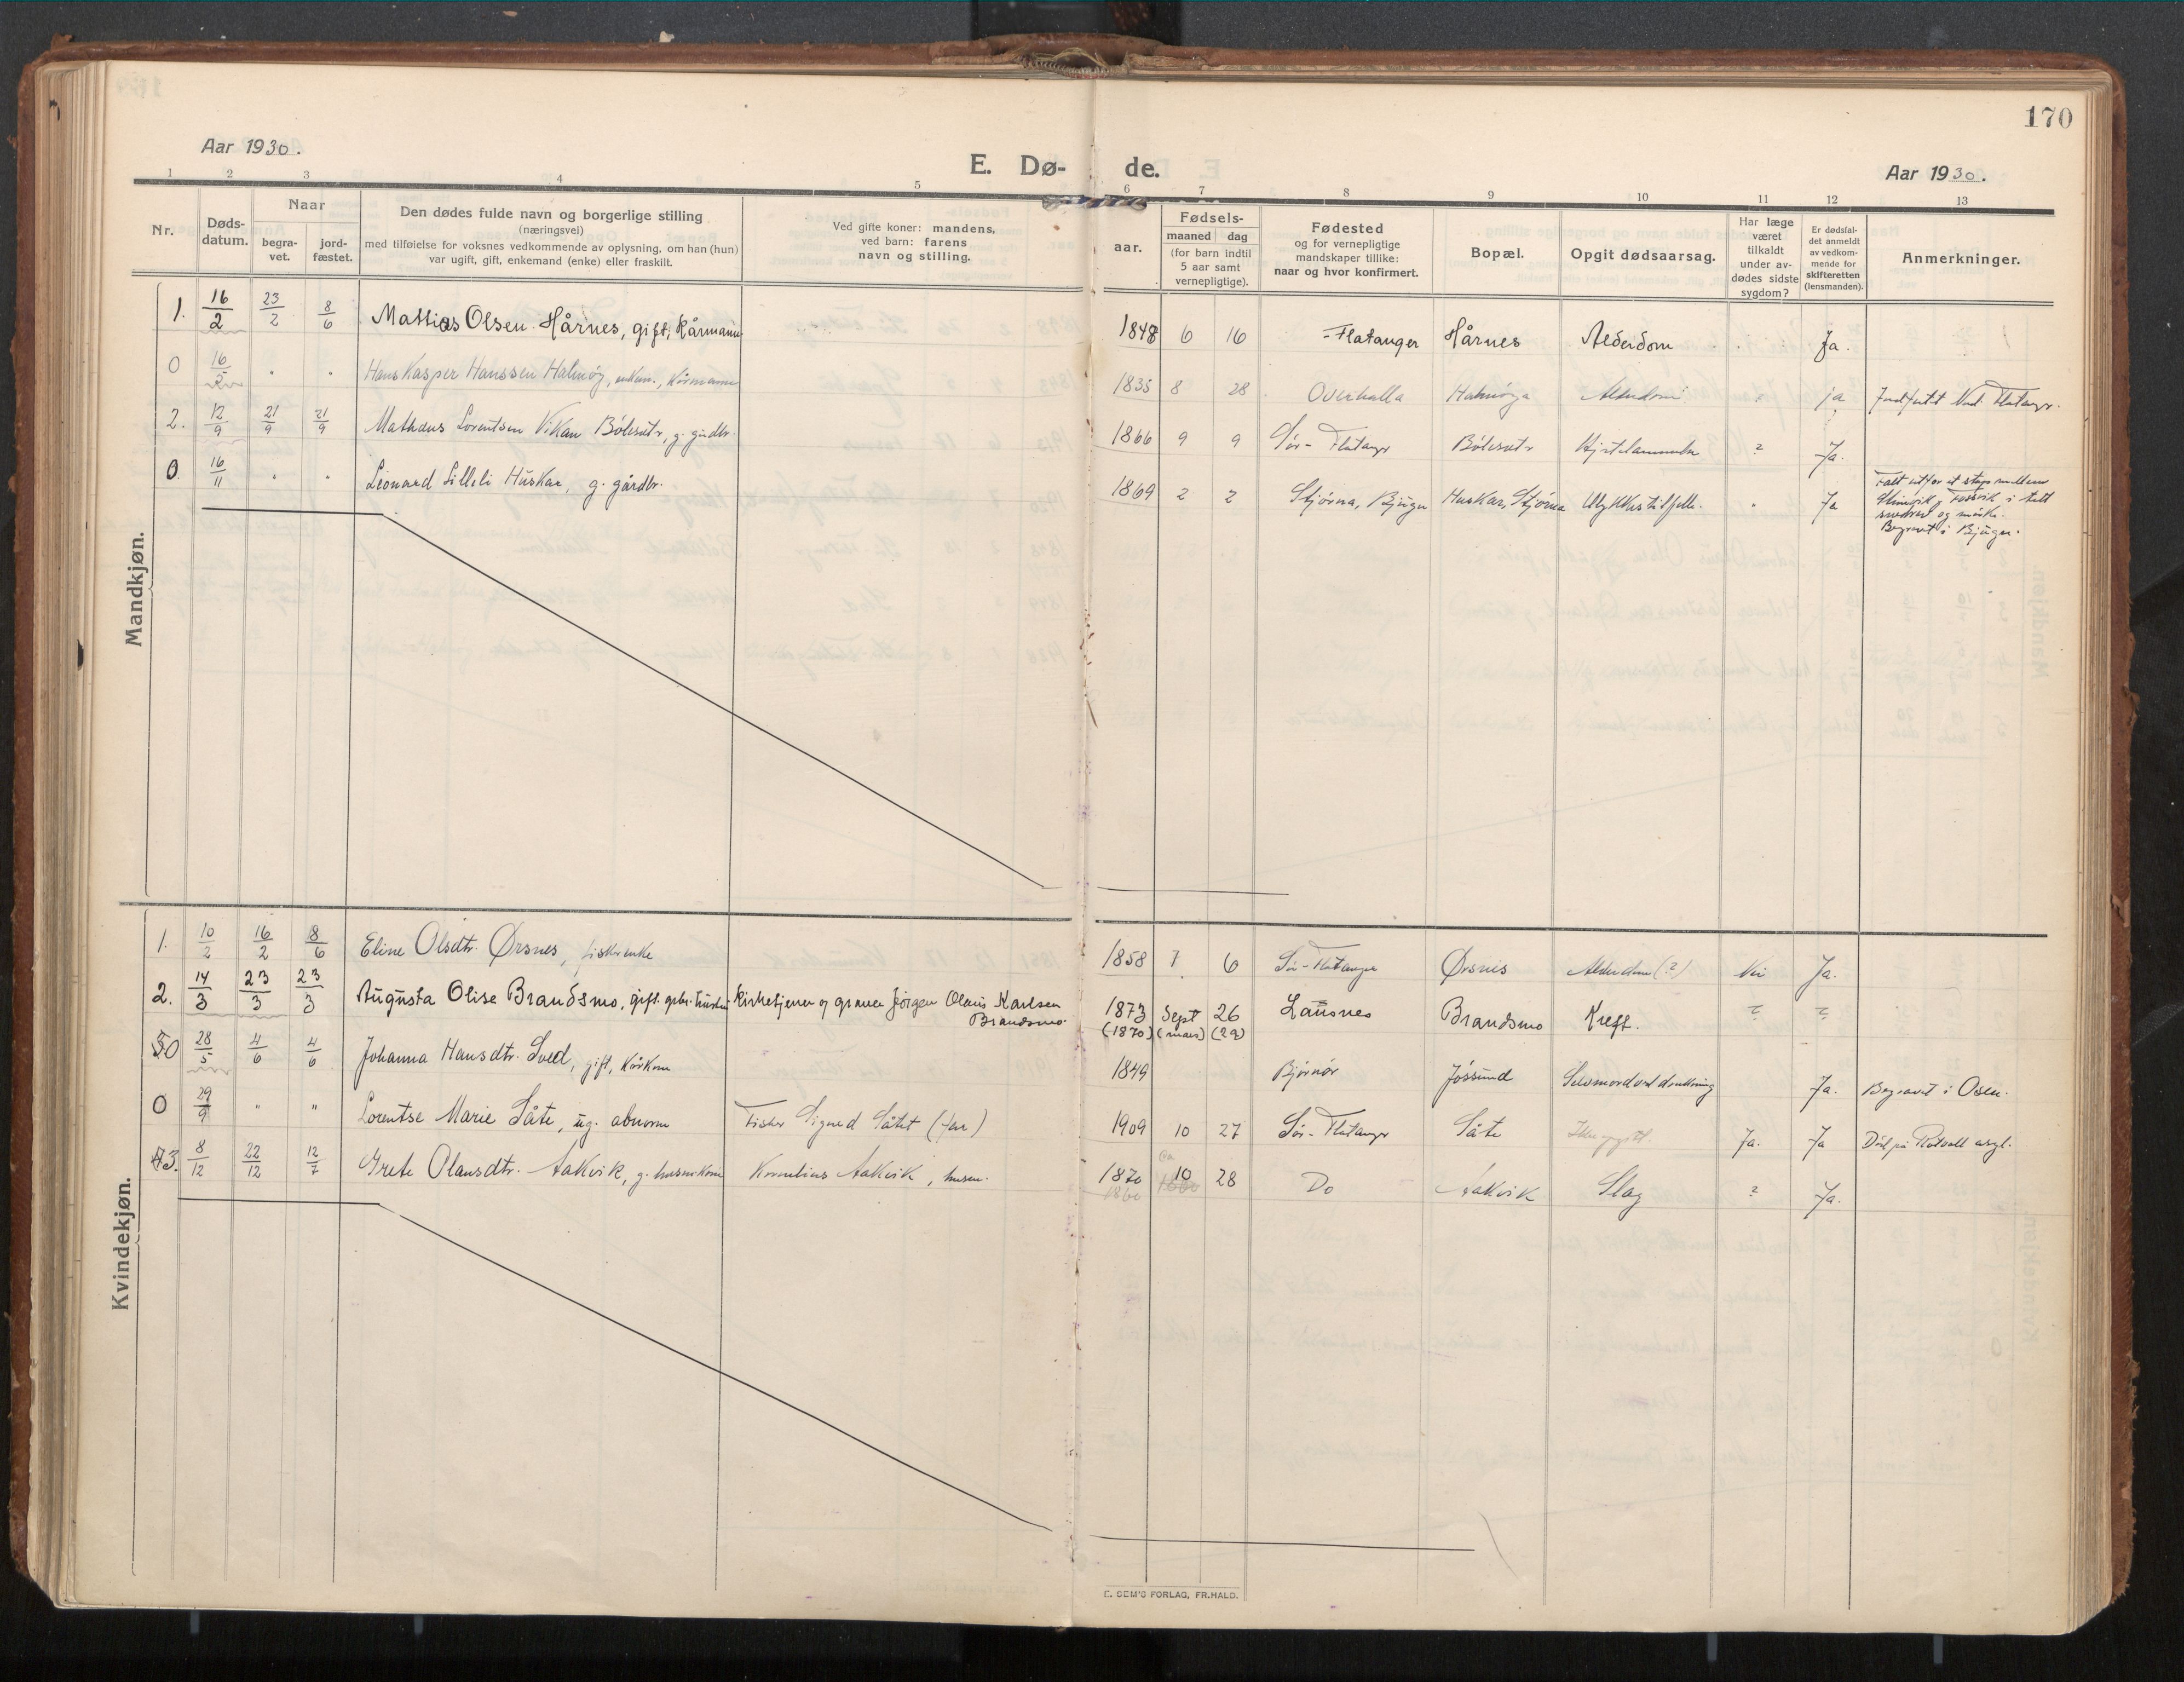 170
Aar 1930.
E. Dø- de.
Aar 1930.
1 2 3 4 5 6 7 8 9 10 11 12 13
Nr.
Døds-
datum.
Naar
begra-
vet.
jord-
fæstet.
Den dødes fulde navn og borgerlige stilling
(næringsvei)
med tilføielse for voksnes vedkommende av oplysning, om han (hun)
var ugift, gift, enkemand (enke) eller fraskilt.
Ved gifte koner: mandens,
ved barn: farens
navn og stilling.
Fødsels-
aar.
maaned dag
(for barn indtil
5 aar samt
vernepligtige).
Fødested
og for vernepligtige
mandskaper tillike:
naar og hvor konfirmert.
Bopæl.
Opgit dødsaarsag.
Har læge
været
tilkaldt
under av-
dødes sidste
sygdom?
Er dødsfal-
det anmeldt
av vedkom-
mende for
skifteretten
(lensmanden).
Anmerkninger.
Mandkjøn.
1. 16/2 23/2 8/6 Mattias Olsen Hårnes, gift, Kårmann 1848 6 16 -Flatanger Hårnes Alderdom Ja.
0 16/5 " " Hans Kasper Hanssen Halmøy, enkem., Kårmann 1835 8 28 Overhalla Halmøya Alderdom " ja Jordfestt Nord Flatangr.
2. 12/9 21/9 21/9 Mathæus Lorentsen Vikan Bölesetr, g. grdbr. 1866 9 9 Sör-Flatangr Bölesetr Hjertelammelse ? Ja.
0 16/11 " " Leonard Lilleli Huskar, g. gårdbr. 1869 2 2 Stjørna, Bjugn Huskar, Stjørna Ulykkestilfelle. " Ja Falt utfor et stup mellem
Tøssvik i tett
snedrev og mörke.
Begravet i Bjugn.
Kvindekjøn.
1. 10/2 16/2 8/6 Eline Olsdtr. Ørsnes, fiskerenke 1858 7 6 Sör-Flatanger Ørsnes Alderdom (?) Nei Ja.
2. 14/3 23/3 23/3 Augusta Olise Brandsmo, gift. grbr. hustru Kirketjener og graver Jörgen Olaus Karlsen
Brandsmo. 1873 Sept 26 Lausnes Brandsmo Kreft. ? ?
(1870) (mars) (29)
0 28/5 4/6 4/6 Johanna Hansdtr. Sved, gift, Kårkone 1849 Bjørnør Jössund Selvmord ved drukning Ja. Begravet i Osen.
0 29/9 " " Lorentse Marie Såte, ug. abnorm Fisker Sigurd Såtet (far) 1909 10 27 Sör-Flatangr Såte Ikke opgitt. Ja. Ja Död på Rotvoll asyl.
3. 8/12 22/12 12/7 Grete Olausdtr. Aakvik, g. husmkone Kornelius Aakvik, husm. 1870 10 28 Do Aakvik Slag ? Ja.
1860
E. SEM'S FORLAG, FR.HALD.